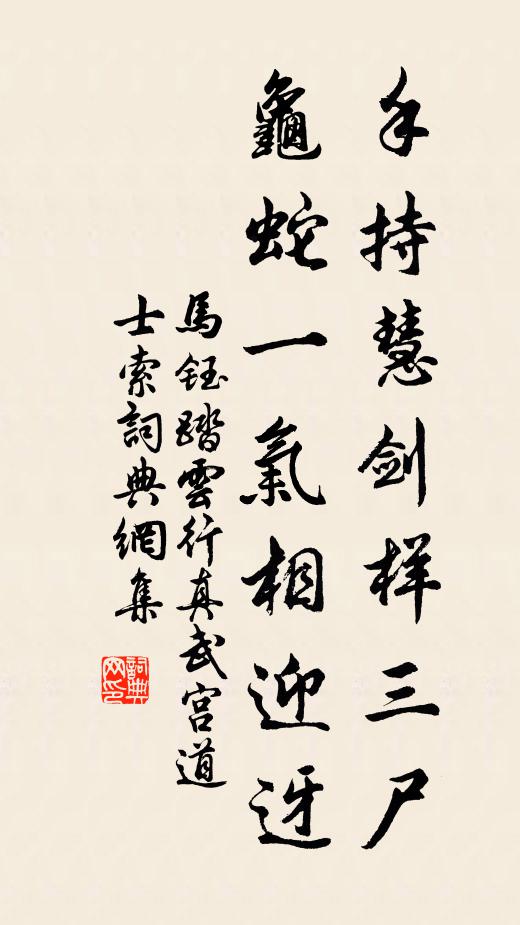 手持慧剑样三尸
龜蛇一氣相迎迓
馬鈺踏雲行真武宫道
士索詞典網集
詞典网印